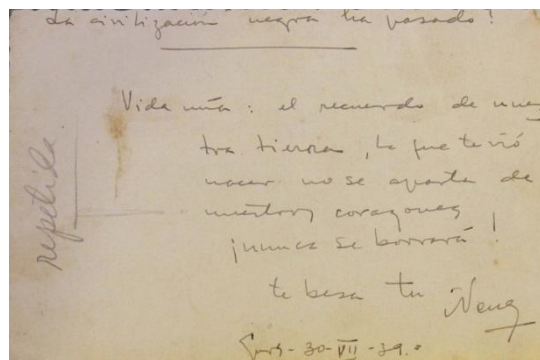 La civilización negra ha pasado!
Vida mía: el recuerdo de nues
tra tierra, la que te vió
nacer no se aparta de
nuestros corazones
¡nunca se borrará!
te besa tu Nene
Gurs - 30-VII-39.
repetida